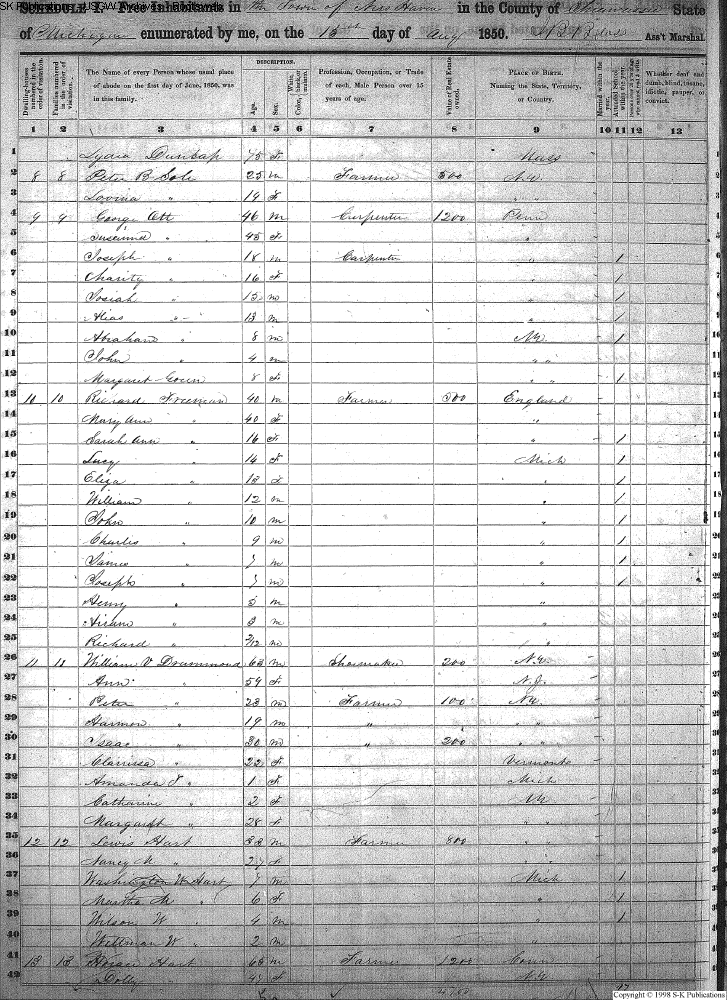 SCHEDULE I. Free Inhabitants in the Town of New Haven in the County of Shiawassee State
of Michigan enumerated by me, on the 15th day of Aug 1850. Ass't Marshal.
DESCRIPTION.
Dwelling-houses numbered in the order of visitation. Families numbered in the order of visitation. The Name of every Person whose usual place of abode on the first day of June, 1850, was in this family. Age. Sex. Color, Profession, Occupation, or Trade of each Male Person over 15 years of age. Value of Real Estate owned. PLACE OF BIRTH. Naming the State, Territory, or Country. Married within the year. Whether deaf and dumb, blind, insane, idiotic, pauper, or convict.
1 2 3 4 5 6 7 8 9 10 11 12 13
1 Lydia Dunlap 75 f Mass
2 8 8 Peter B Sole 25 m Farmer 500 N.Y.
3 Lovina " 19 f " "
4 9 9 George Ott 46 m Carpenter 1200 Penn
5 " 45 f "
6 Joseph " 18 m Carpenter " 1
7 Charity " 16 f " 1
8 Josiah " 15 m " 1
9 " 13 m " 1
10 Abraham " 8 m N.Y. 1
11 John " 4 m " "
12 Margaret 8 f " " 1
13 10 10 Richard Freeman 40 m Farmer 500 England
14 Mary Ann " 40 f "
15 Sarah Ann " 16 f " 1
16 Lucy " 14 f Mich 1
17 Eliza " 13 f " 1
18 William " 12 m " 1
19 John " 10 m " 1
20 Charles " 9 m " 1
21 James " 7 m " 1
22 Joseph " 7 m " 1
23 Henry " 5 m "
24 Hiram " 3 m "
25 Richard " 2/12 m "
26 11 11 William V Drummond 63 m Shoemaker 200 N.Y.
27 Ann " 59 f N.J.
28 Peter " 23 m Farmer 100 N.Y.
29 Harmon " 19 m " " "
30 Isaac " 30 m " 200 " "
31 Clarrissa " 22 f Vermont
32 Amanda J " 1 f Mich
33 Catharine " 2 f N.Y.
34 Margarett " 28 f " "
35 12 12 Lewis Hart 33 m Farmer 800 " "
36 Nancy M " 27 f " "
37 Washington W Hart 7 m Mich 1
38 Martha M " 6 f " 1
39 Wilson W " 4 m " 1
40 Willman W " 2 m "
41 13 13 Horace Hart 63 m Farmer 1200 Conn
42 Dolly " f N.Y.
Copyright © 1998 S-K Publications